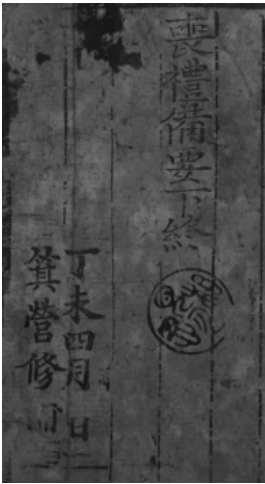 喪禮備要下終
丁未四月 日
箕營修